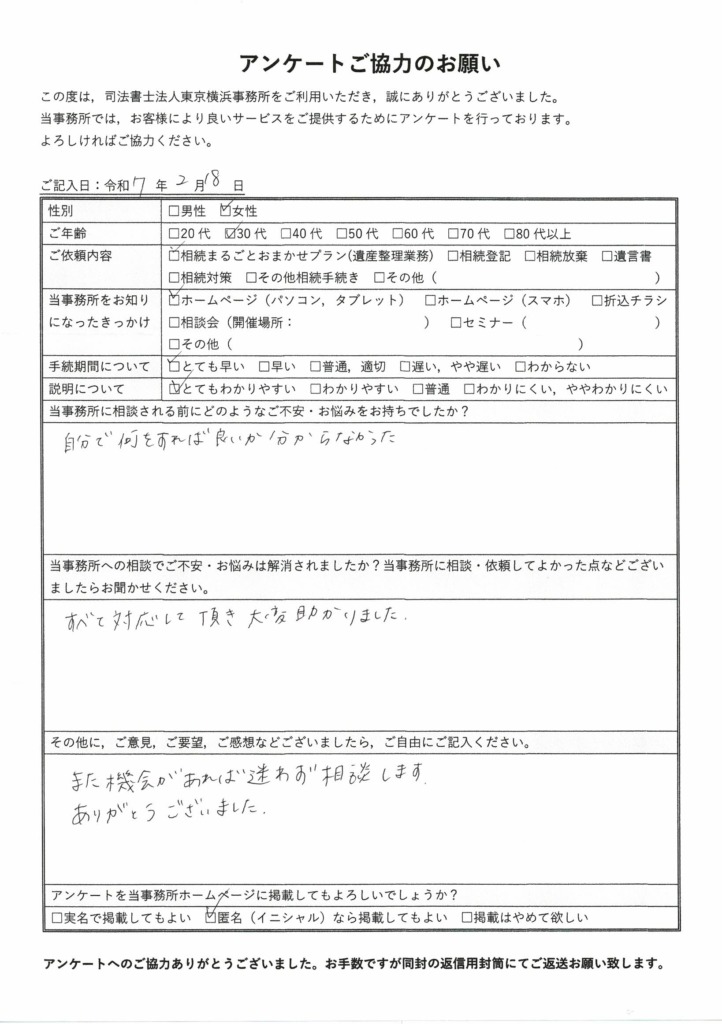 アンケートご協力のお願い
この度は，司法書士法人東京横浜事務所をご利用いただき，誠にありがとうございました。
当事務所では，お客様により良いサービスをご提供するためにアンケートを行っております。
よろしければご協力ください。
ご記入日：令和 7 年 2 月 18 日
性別 □男性 ☑女性
ご年齢 □20 代 ☑30 代 □40 代 □50 代 □60 代 □70 代 □80 代以上
ご依頼内容 ☑相続まるごとおまかせプラン(遺産整理業務) □相続登記 □相続放棄 □遺言書
□相続対策 □その他相続手続き □その他（ ）
当事務所をお知り ☑ホームページ（パソコン，タブレット） □ホームページ（スマホ） □折込チラシ
になったきっかけ □相談会（開催場所： ） □セミナー（ ）
□その他（ ）
手続期間について ☑とても早い □早い □普通，適切 □遅い，やや遅い □わからない
説明について ☑とてもわかりやすい □わかりやすい □普通 □わかりにくい，ややわかりにくい
当事務所に相談される前にどのようなご不安・お悩みをお持ちでしたか？
自分で何をすれば良いか分からなかった
当事務所への相談でご不安・お悩みは解消されましたか？当事務所に相談・依頼してよかった点などござい
ましたらお聞かせください。
すべて対応して頂き大変助かりました.
その他に，ご意見，ご要望，ご感想などございましたら，ご自由にご記入ください。
また機会があれば迷わず相談します.
ありがとうございました.
アンケートを当事務所ホームページに掲載してもよろしいでしょうか？
□実名で掲載してもよい ☑匿名（イニシャル）なら掲載してもよい □掲載はやめて欲しい
アンケートへのご協力ありがとうございました。お手数ですが同封の返信用封筒にてご返送お願い致します。